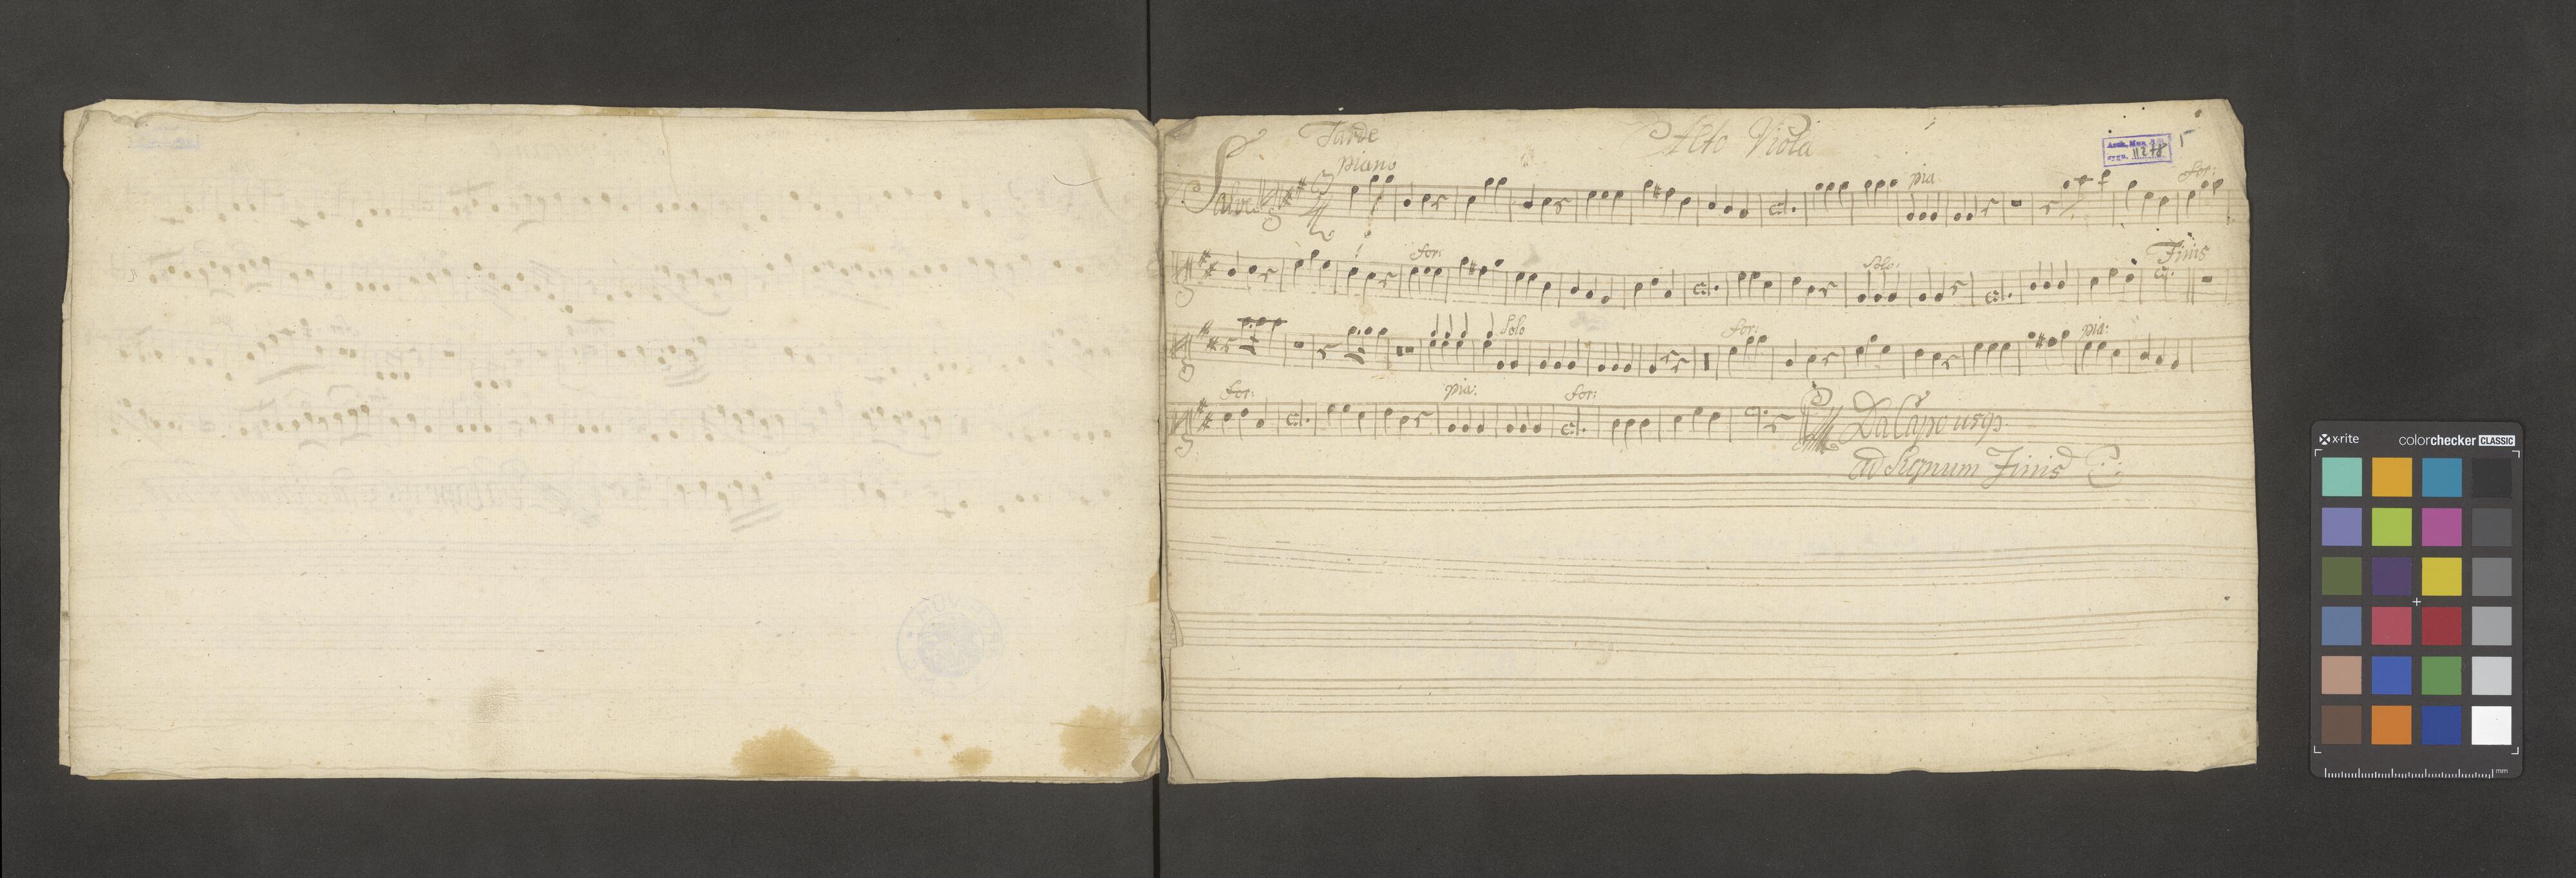 Tarde
Alto Viola
piano
Salve
pia
for:
for:
Solo:
Finis
Solo
for:
pia:
for:
pia:
for:
Da Capo usq
ad Signum Finis
x-rite
colorchecker CLASSIC
mm